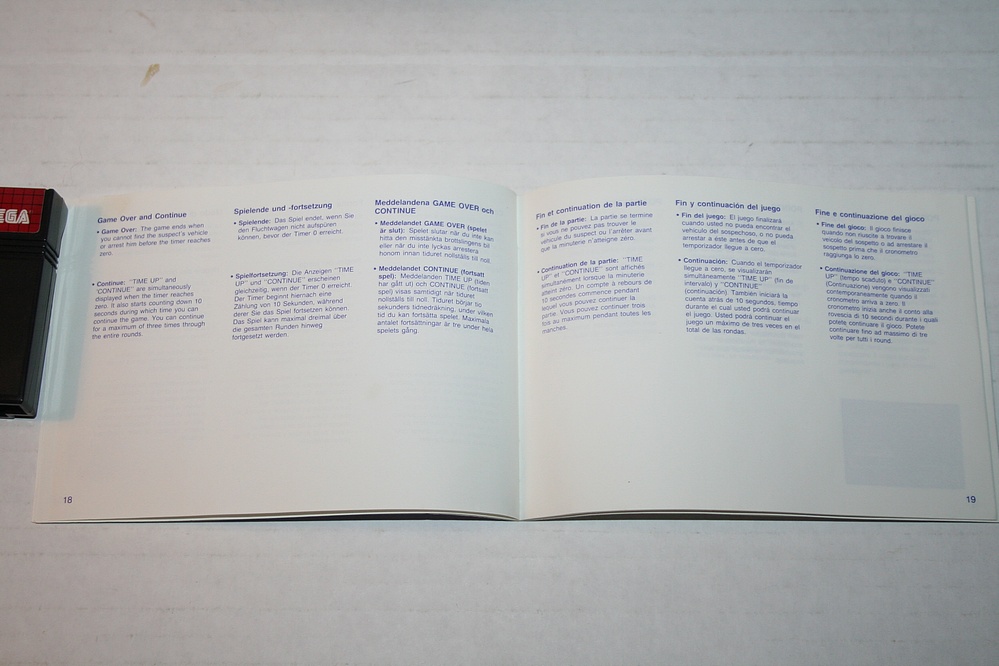 EGA
Game Over and Continue
• Game Over: The game ends when
you cannot find the suspect's vehicle
or arrest him before the timer reaches
zero.
• Continue: "TIME UP" and
"CONTINUE" are simultaneously
displayed when the timer reaches
zero. It also starts counting down 10
seconds during which time you can
continue the game. You can continue
for a maximum of three times through
the entire rounds.
Spielende und -fortsetzung
• Spielende: Das Spiel endet, wenn Sie
den Fluchtwagen nicht aufspüren
können, bevor der Timer 0 erreicht.
• Spielfortsetzung: Die Anzeigen "TIME
UP" und "CONTINUE" erscheinen
gleichzeitig, wenn der Timer 0 erreicht.
Der Timer beginnt hiernach eine
Zählung von 10 Sekunden, während
derer Sie das Spiel fortsetzen können.
Das Spiel kann maximal dreimal über
die gesamten Runden hinweg
fortgesetzt werden.
Meddelandena GAME OVER och
CONTINUE
• Meddelandet GAME OVER (spelet
är slut): Spelet slutar när du inte kan
hitta den misstänkta brottslingens bil
eller när du inte lyckas arrestera
honom innan tiduret nollställs till noll.
• Meddelandet CONTINUE (fortsatt
spel): Meddelanden TIME UP (tiden
har gått ut) och CONTINUE (fortsatt
spel) visas samtidigt när tiduret
nollställs till noll. Tiduret börjar tio
sekunders tidnedräkning, under vilken
tid du kan fortsätta spelet. Maximala
antalet fortsättningar är tre under hela
spelets gång
18
Fin et continuation de la partie
• Fin de la partie: La partie se termine
si vous ne pouvez pas trouver le
véhicule du suspect ou l'arrêter avant
que la minuterie n'atteigne zéro.
• Continuation de la partie: "TIME
UP" et "CONTINUE" sont affichés
simultanément lorsque la minuterie
atteint zéro. Un compte à rebours de
10 secondes commence pendant
lequel vous pouvez continuer la
partie. Vous pouvez continuer trois
fois au maximum pendant toutes les
manches.
Fin y continuación del juego
• Fin del juego: El juego finalizará
cuando usted no pueda encontrar el
vehículo del sospechoso, o no pueda
arrestar a éste antes de que el
temporizador llegue a cero.
• Continuación: Cuando el temporizador
llegue a cero, se visualizarán
simultáneamente "TIME UP" (fin de
intervalo) y "CONTINUE"
(continuación). También iniciará la
cuenta atrás de 10 segundos, tiempo
durante el cual usted podrá continuar
el juego. Usted podrá continuar el
juego un máximo de tres veces en el
total de las rondas.
Fine e continuazione del gioco
• Fine del gioco: Il gioco finisce
quando non riuscite a trovare il
veicolo del sospetto o ad arrestare il
sospetto prima che il cronometro
raggiunga lo zero.
• Continuazione del gioco: "TIME
UP" (tempo scaduto) e "CONTINUE"
(Continuazione) vengono visualizzati
contemporaneamente quando il
cronometro arriva a zero. Il
cronometro inizia anche il conto alla
rovescia di 10 secondi durante i quali
potete continuare il gioco. Potete
continuare fino ad massimo di tre
volte per tutti i round.
19